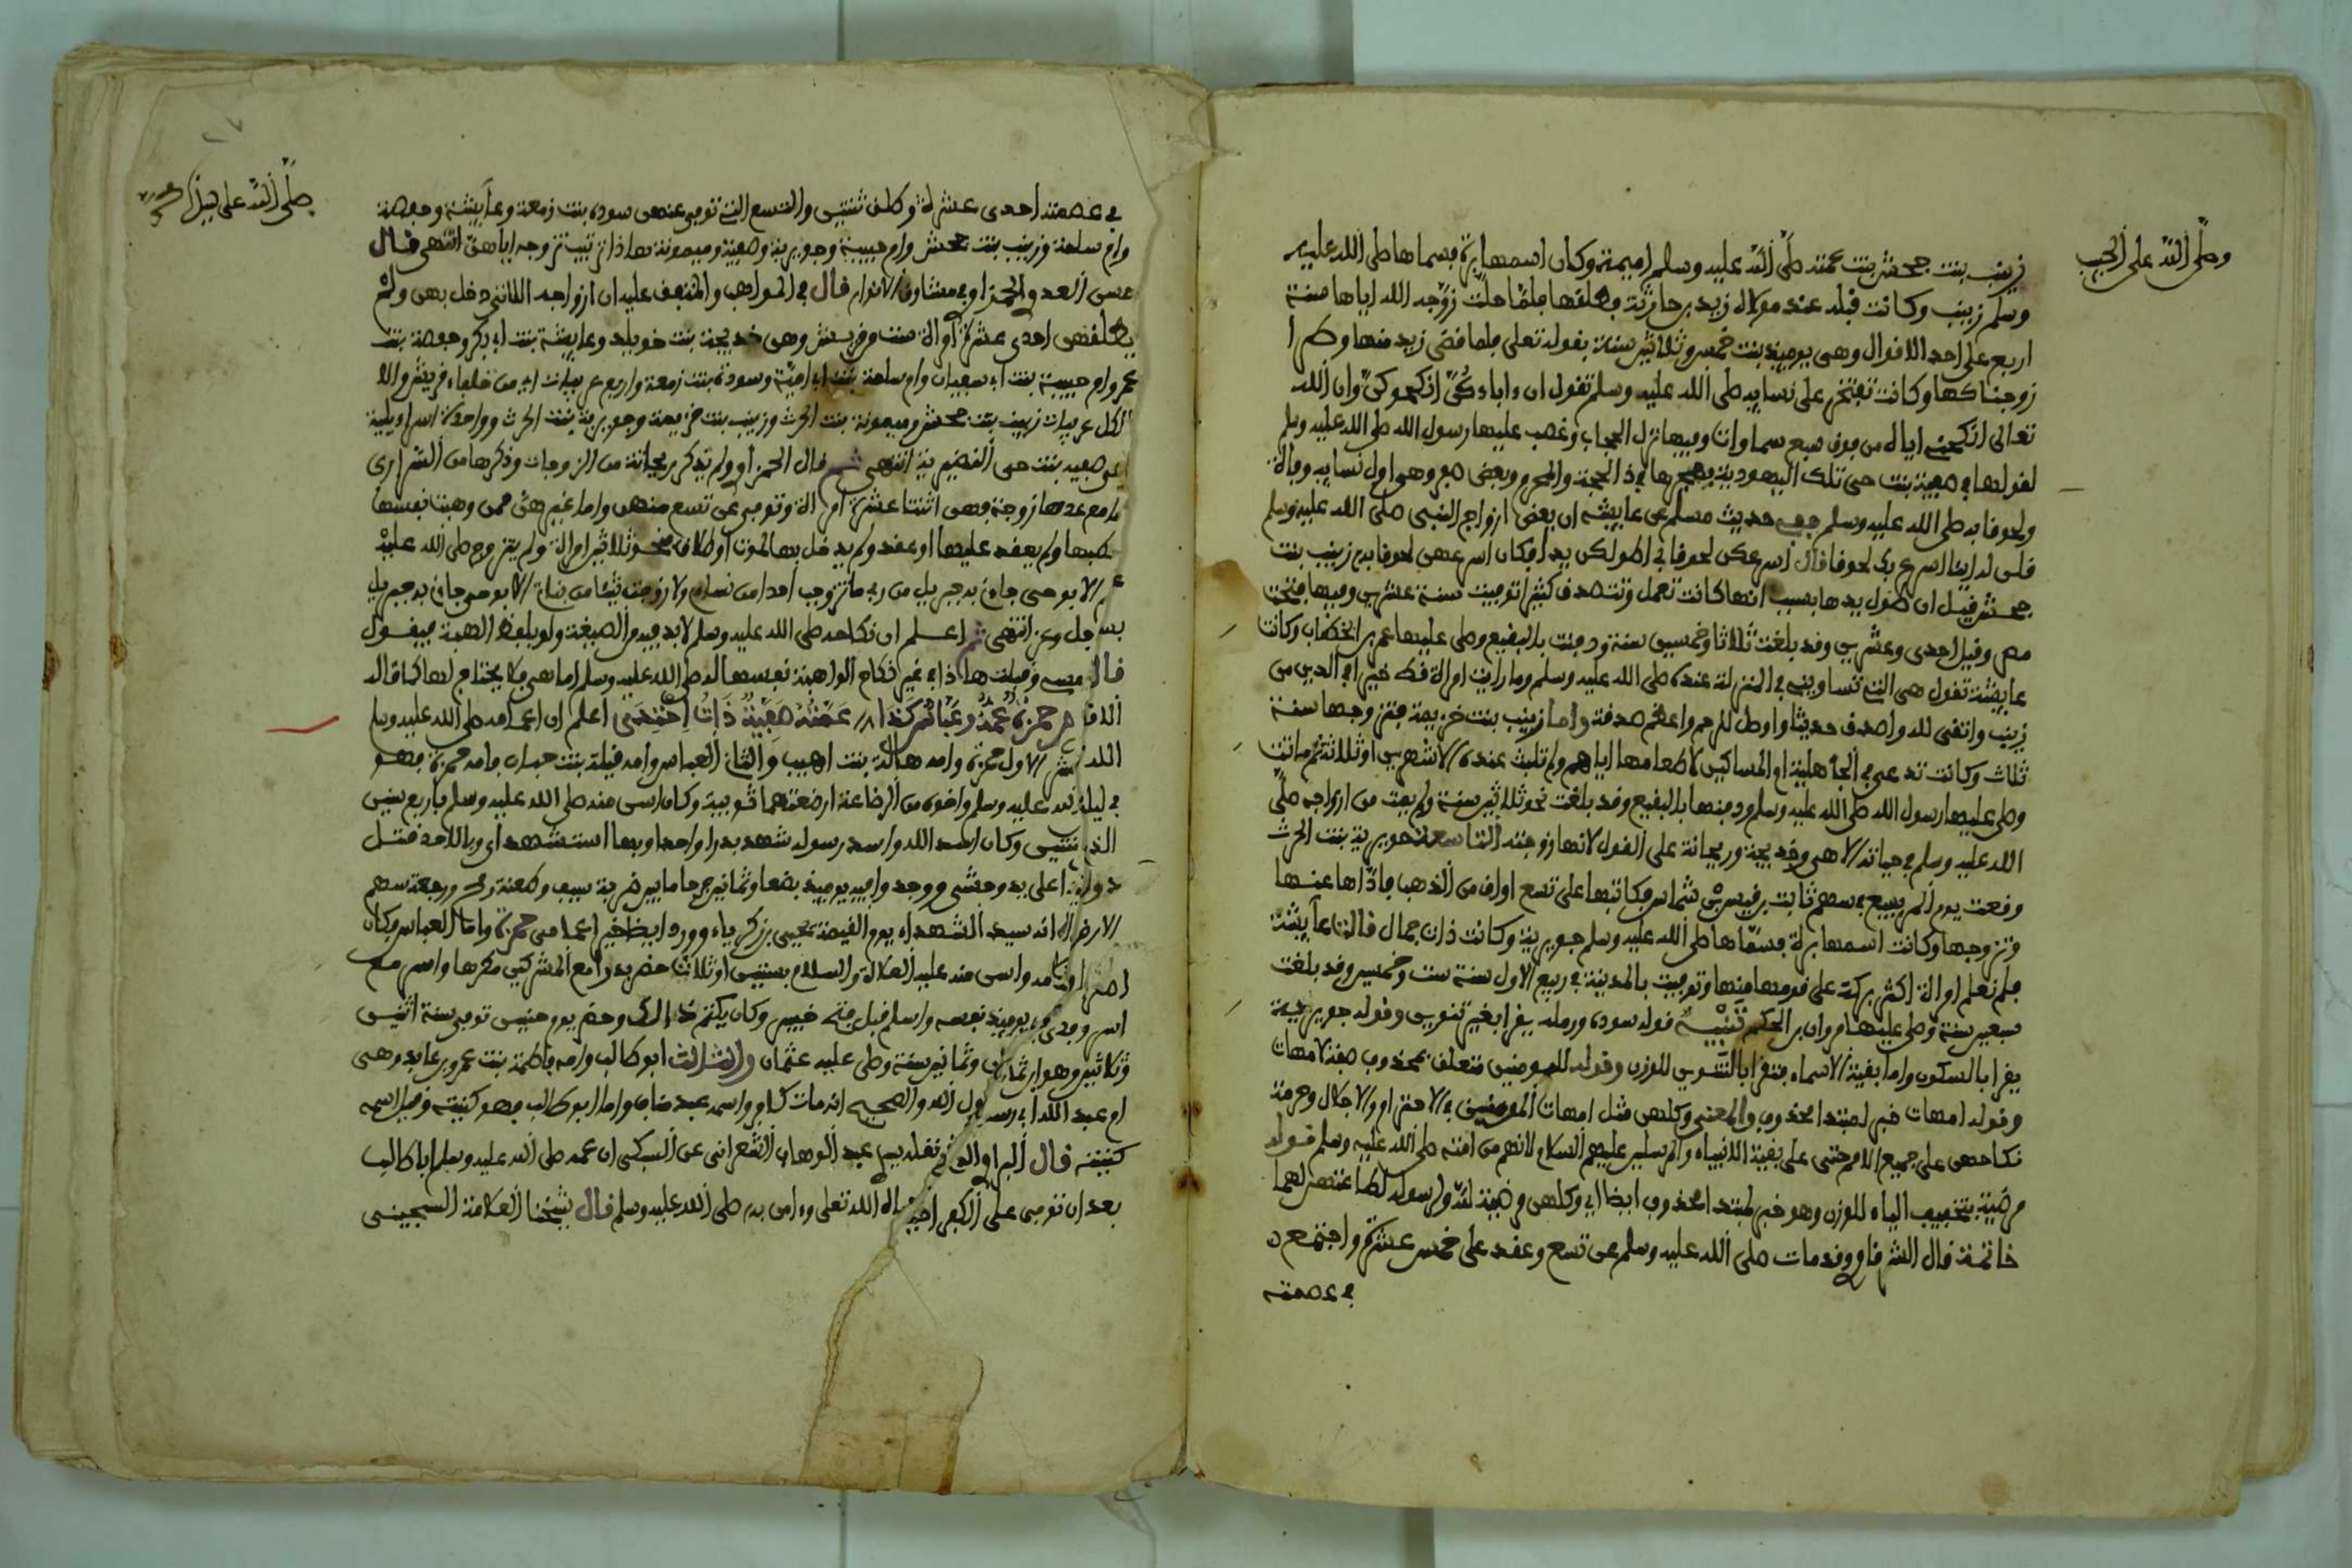 وصلى الله على الحبيب
زينب بنت جحش بنت عمته صلى الله عليه وسلم اميمة وكان اسمها برة فسماها صلى الله عليه
وسلم زينب وكانت قبله عند مولاه زيد بن حارثة فطلقها فلما حلت زوجه الله اياها سنة
اربع على احد الاقوال وهي يوميذ بنت خمس وثلاثين سنة بقوله تعلى فلما قضى زيد منها وطرا
زوجناكها وكانت تفتخر على نسايه صلى الله عليه وسلم تقول ان ءاباءكن انكحوكن وان الله
تعالى انكحني اياه من فوق سبع سماوات وفيها نزل الحجاب وغضب عليها رسول الله صلى الله عليه وسلم
لقولها في صفية بنت حيي تلك اليهودية فهجرها في ذا الحجة والمحرم وبعض صفر وهي اول نسايه وفاة
ولحوقا به صلى الله عليه وسلم ففي حديث مسلم عن عايشة ان بعض ازواج النبي صلى الله عليه وسلم
قلن له اينا اسرع بك لحوقا قال اسرعكن لحوقا بي اطولكن يدا فكان اسرعهن لحوقا به زينب بنت
جحش قيل ان طول يدها بسبب انها كانت تعمل وتتصدق كثيرا توفيت سنة عشرين وفيها فتحت
مصر وقيل احدى وعشرين وقد بلغت ثلاثا وخمسين سنة ودفنت بالبقيع وصلى عليها عمر بن الخطاب وكانت
عايشة تقول هي التي تساويني في المنزلة عنده صلى الله عليه وسلم وما رايت امراة قط خيرا في الدين من
زينب واتقى لله واصدق حديثا واوصل للرحم واعظم صدقة واما زينب بنت خزيمة فتزوجها سنة
ثلاث وكانت تدعى في الجاهلية ام المساكين لاطعامها اياهم ولم تلبث عنده الا شهرين او ثلاثة ثم ماتت
وصلى عليها رسول الله صلى الله عليه وسلم ودفنها بالبقيع وقد بلغت نحو ثلاثين سنة ولم يمت من ازواجه صلى
الله عليه وسلم في حياته الا هي وخديجة وريحانة على القول لانها زوجته التاسعة جويرية بنت الحرث
وقعت يوم المريسيع في سهم ثابت بن قيس بن شماس فكاتبها على تسع اواق من الذهب فاداها عنها
وتزوجها وكانت اسمها برة فسماها صلى الله عليه وسلم جويرية وكانت ذات جمال قالت عايشة
فلم نعلم امراة اكثر بركة على قومها منها وتوفيت بالمدينة في ربيع الاول سنة ست وخمسين وقد بلغت
سبعين سنة وصلى عليها مروان بن الحكم تنبيه قوله سوده ورمله يقرا بغير تنوين وقوله جويرية
يقرا بالسكون واما بقية الاسماء فتقرا بالتنوين للوزن وقوله للمومنين متعلق بمحذوف صفة لامهات
وقوله امهات خبر لمبتدا محذوف والمعنى وكلهن مثل امهات المومنين في الاحترام والاجلال وحرمة
نكاحهن على جميع الامم حتى على بقية الانبياء والمرسلين عليهم السلام لانهم من امته صلى الله عليه وسلم قوله
مرضية بتخفيف الياء للوزن وهو خبر لمبتدا محذوف ايضا اي وكلهن مرضية لله ولرسوله لطاعتهن لهما
خاتمة قال الشرقاوي وقد مات صلى الله عليه وسلم عن تسع وعقد على خمس عشرة واجتمع
في عصمته
صلى الله على
في عصمته احدى عشرة وطلق ثنتين والتسع التي توفي عنهن سوده بنت زمعة وعايشة وحفصة
وام سلمة وزينب بنت جحش وام حبيبة وجويرية وصفية وميمونة هذا ترتيب تزوجه اياهن انتهى قال
حسن العدوي الحمزاوي في مشارق الانوار قال في المواهب والمتفق عليه ان ازواجه اللاتي دخل بهن ولم
يطلقهن احدى عشرة امراة ست من قريش وهي خديجة بنت خويلد وعايشة بنت ابي بكر وحفصة بنت
عمر وام حبيبة بنت ابي سفيان وام سلمة بنت ابي امية وسودة بنت زمعة واربع عربيات اي من خلفاء قريش والا
الكل عربيات زينب بنت جحش وميمونة بنت الحرث وزينب بنت خزيمة وجويرية بنت الحرث وواحدة اسراءيلية
وهي صفيه بنت حيي النضيرية انتهى ثم قال الحمزاوي ولم يذكر ريحانة من الزوجات وذكرها من السراري
مع عدها زوجة فهي اثنتا عشرة امراة وتوفي عن تسع منهن واما غيرهن ممن وهبت نفسها
ولم يعقد عليها او عقد ولم يدخل بها لموت او طلاق فنحو ثلاثين امراة ولم يتزوج صلى الله عليه
الا بوحي جاءني به جبريل من ربي ما تزوجت احدا من نساءي ولا زوجت شيئا من بناتي الا بوحي جاءني به جبريل
عز وجل انتهى ثم اعلم ان نكاحه صلى الله عليه وسلم لابد فيه من الصيغة ولو بلفظ الهبة فيقول
قبلت هذا في غير نكاح الواهبة نفسها له صلى الله عليه وسلم اما هي فلا يحتاج لها كما قاله
حمزة عمه وعباس كذا عمته صفية ذات احتذى اعلم ان اعمامه صلى الله عليه وسلم
الاول حمزة وامه هالة بنت اهيب والثاني العباس وامه فيلة بنت حباب فامه حمزة فهو
عليه وسلم واخوه من الرضاعة ارضعتهما ثويبة وكان اسن منه صلى الله عليه وسلم باربع سنين
وكان اسد الله واسد رسوله شهد بدرا واحدا وبها استشهد اي وباللاحد قتل
على يد وحشي ووجد وا فيه يوميذ بضعا وثمانين جرحا ما بين ضربة سيف وطعنة رمح ورمية سهم
انه سيد الشهداء يوم القيمة يحيى بن زكرياء وورد ايضا خير اعمامي حمزة واما العباس فكان
واسن منه عليه الصلاة والسلام بسنتين او ثلاث حضر بدرا مع المشركين مكرها واسر مع
اسر وفدى يوميذ نفسه واسلم قبل فتح خيبر وكان يكتم ذالك وحضر يوم حنين توفي سنة اثنين
وثلاثين وهو ابن ثمان وثمانين سنة وصلى عليه عثمان والثالث ابو طالب وامه فاطمة بنت عمرو بن عايد وهي
ام عبد الله ابي رسول الله والصحيح انه مات كافرا واسمه عبد مناف واما ابو طالب فهو كنيته وقيل اسمه
كنيته قال البراوي الذي نقله سيدي عبد الوهاب الشعراني عن السبكي ان عمه صلى الله عليه وسلم ابا طالب
بعد ان توفي على الكفر احياه الله تعلى وءامن به صلى الله عليه وسلم قال شيخنا العلامة السجيني